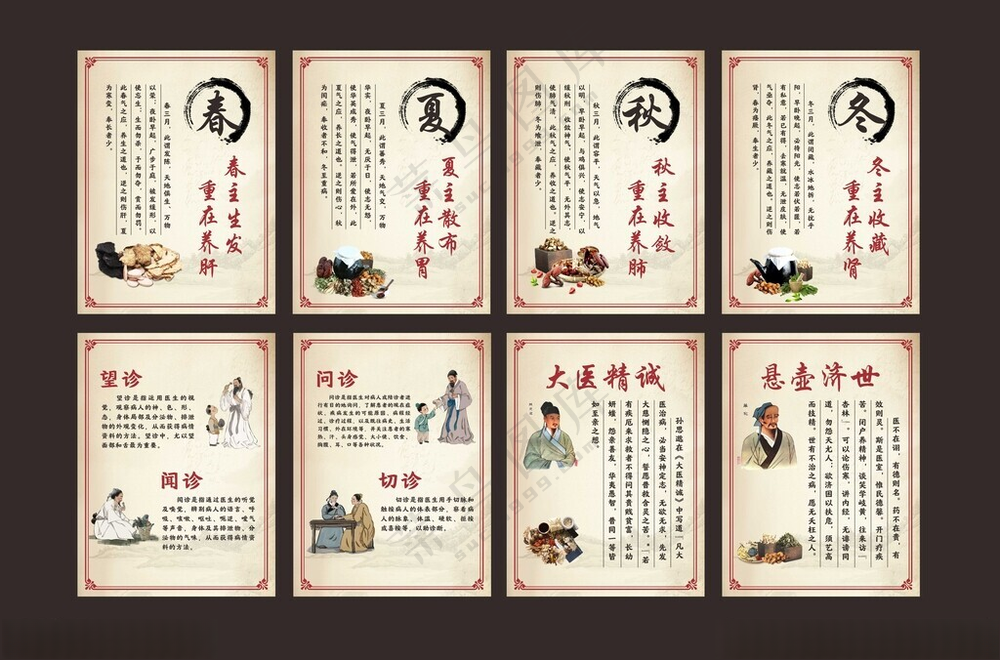 春
春主生发
重在养肝
春三月，此谓发陈，天地俱生，万物
以荣；夜卧早起，广步于庭，被发缓形，以
使志生，生而勿杀，予而勿夺，赏而勿罚，
此春气之应，养生之道也，逆之则伤肝，夏
为寒变，奉长者少。
夏
夏主散布
重在养胃
夏三月，此谓蕃秀，天地气交，万物
华实，夜卧早起，无厌于日，使志无怒，
使华英成秀，使气得泄，若所爱在外，此
夏气之应，养长之道也。逆之则伤心，秋
为痎疟，奉收者不和，冬至重病。
秋
秋主收敛
重在养肺
秋三月，此谓容平，天气以急，地气
以明，早卧早起，与鸡俱兴，使志安宁，以
缓秋刑，收敛神气，使秋气平，无外其志，
使肺气清，此秋气之应，养收之道也。逆之
则伤肺，冬为飧泄，奉藏者少。
冬
冬主收藏
重在养肾
冬三月，此谓闭藏，水冰地坼，无扰乎
阳，早卧晚起，必待阳光，使志若伏若匿，
有私意，若已有得，去寒就温，无泄皮肤，使
气亟夺，此冬气之应，养藏之道也。逆之则伤
肾，春为痿厥，奉生者少。
望诊
望诊是指运用医生的视
觉，观察病人的神、色、形、
态、身体局部及分泌物、排泄
物的外观变化，从而获得病情
资料的方法。望诊中，尤以望
面部和舌最为重要。
闻诊
闻诊是指通过医生的听觉
及嗅觉，辨别病人的语言、呼
吸、咳嗽、呕吐、呃逆、嗳气
等声音，身体及其排泄物、分
泌物的气味，从而获得病情资
料的方法。
问诊
问诊是指医生对病人或陪诊者进
行有目的地询问，了解患者的现在症
状、疾病发生的可能原因、病程经
过、诊疗过程、以及既往病史、生活
习惯、外在环境等，并关注患者的寒
热、汗、头身感觉、大小便、饮食、
胸腹、耳、口等各种状况。
切诊
切诊是指医生用手切脉和
触按病人的体表部分，察看病
人的脉象、体温、硬软、拒按
或喜按等，以助诊断。
大医精诚
孙思邈在《大医精诚》中写道“凡大
医治病，必当安神定志，无欲无求，先发
大慈恻隐之心，誓愿普救含灵之苦。”“若
有疾厄来求救者不得问其贵贱贫富，长幼
妍媸，怨亲善友，华夷愚智，普同一等皆
如至亲之想。
悬壶济世
医不在诩，有德则名。药不在贵，有
效则灵。斯是医室，惟民德馨。开门疗疾
苦，闭户养精神，谈笑学岐黄，往来访“
杏林”。可以论伤寒，讲内经。无诽谤同
道，勿怨天尤人；欲济困以扶危，须艺高
而技精。世有不治之病，愿无夭枉之人。